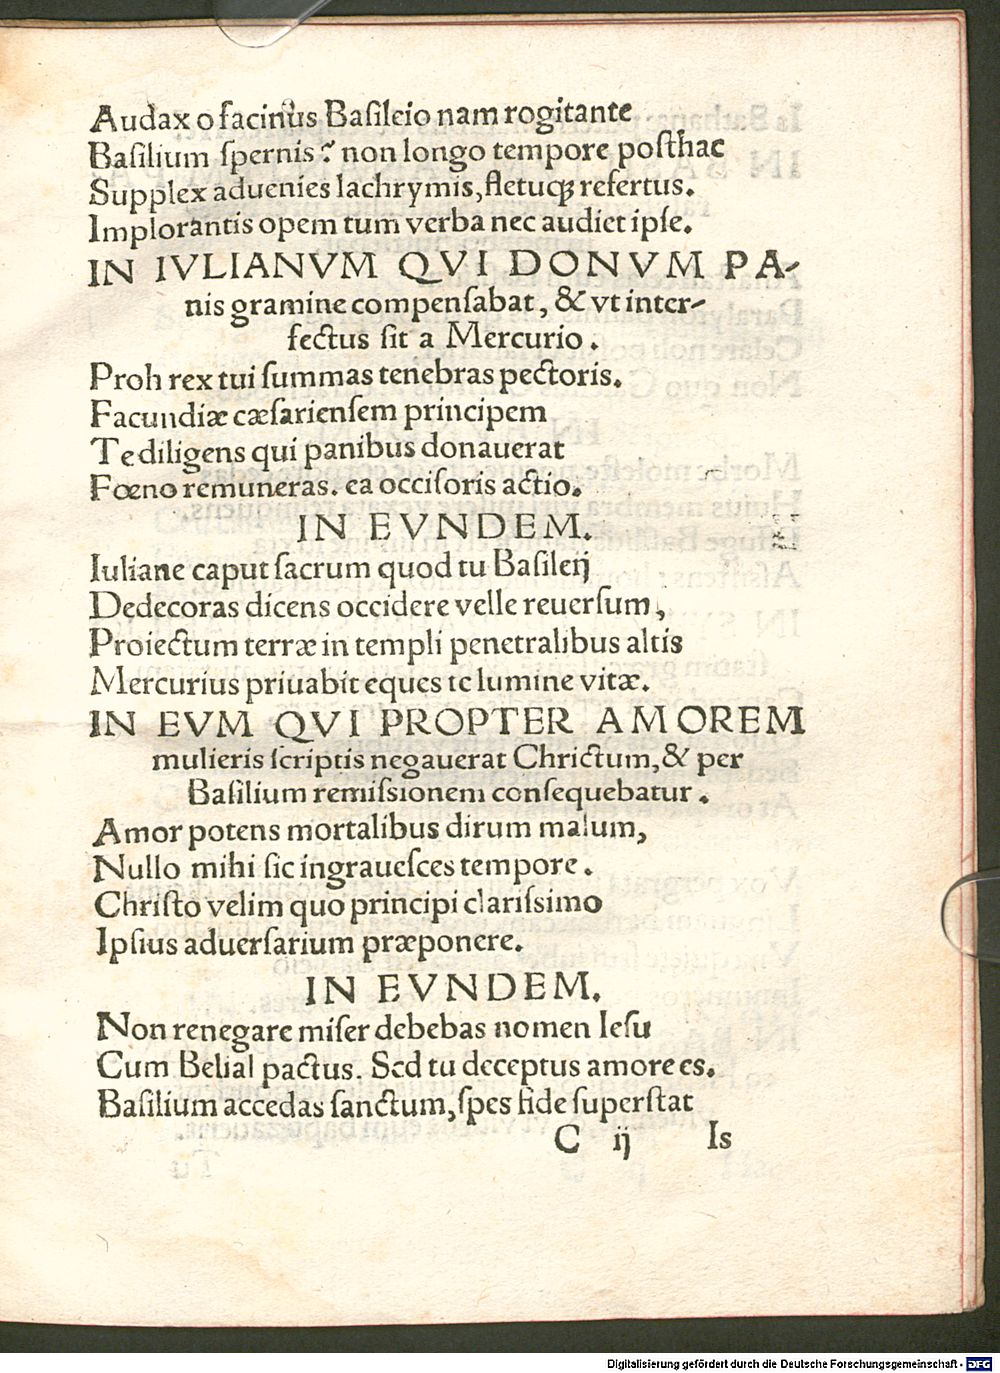 Audax o facinus Basileio nam rogitante
Basilium spernis? non longo tempore posthac
Supplex aduenies lachrymis, fletuqꝫ refertus.
Implorantis opem tum verba nec audiet ipse.
IN IVLIANVM QVI DONVM PA-
nis gramine compensabat, & vt inter-
fectus sit a Mercurio.
Proh rex tui summas tenebras pectoris.
Facundiæ cæsariensem principem
Te diligens qui panibus donauerat
Fœno remuneras. ea occisoris actio.
IN EVNDEM.
Iuliane caput sacrum quod tu Basileij
Dedecoras dicens occidere velle reuersum,
Proiectum terræ in templi penetralibus altis
Mercurius priuabit eques te lumine vitæ.
IN EVM QVI PROPTER AMOREM
mulieris scriptis negauerat Chrictum, & per
Basilium remissionem consequebatur.
Amor potens mortalibus dirum malum,
Nullo mihi sic ingrauesces tempore.
Christo velim quo principi clarissimo
Ipsius aduersarium præponere.
IN EVNDEM.
Non renegare miser debebas nomen Iesu
Cum Belial pactus. Sed tu deceptus amore es.
Basilium accedas sanctum, spes fide superstat
C ij Is
Digitalisierung gefördert durch die Deutsche Forschungsgemeinschaft - DFG